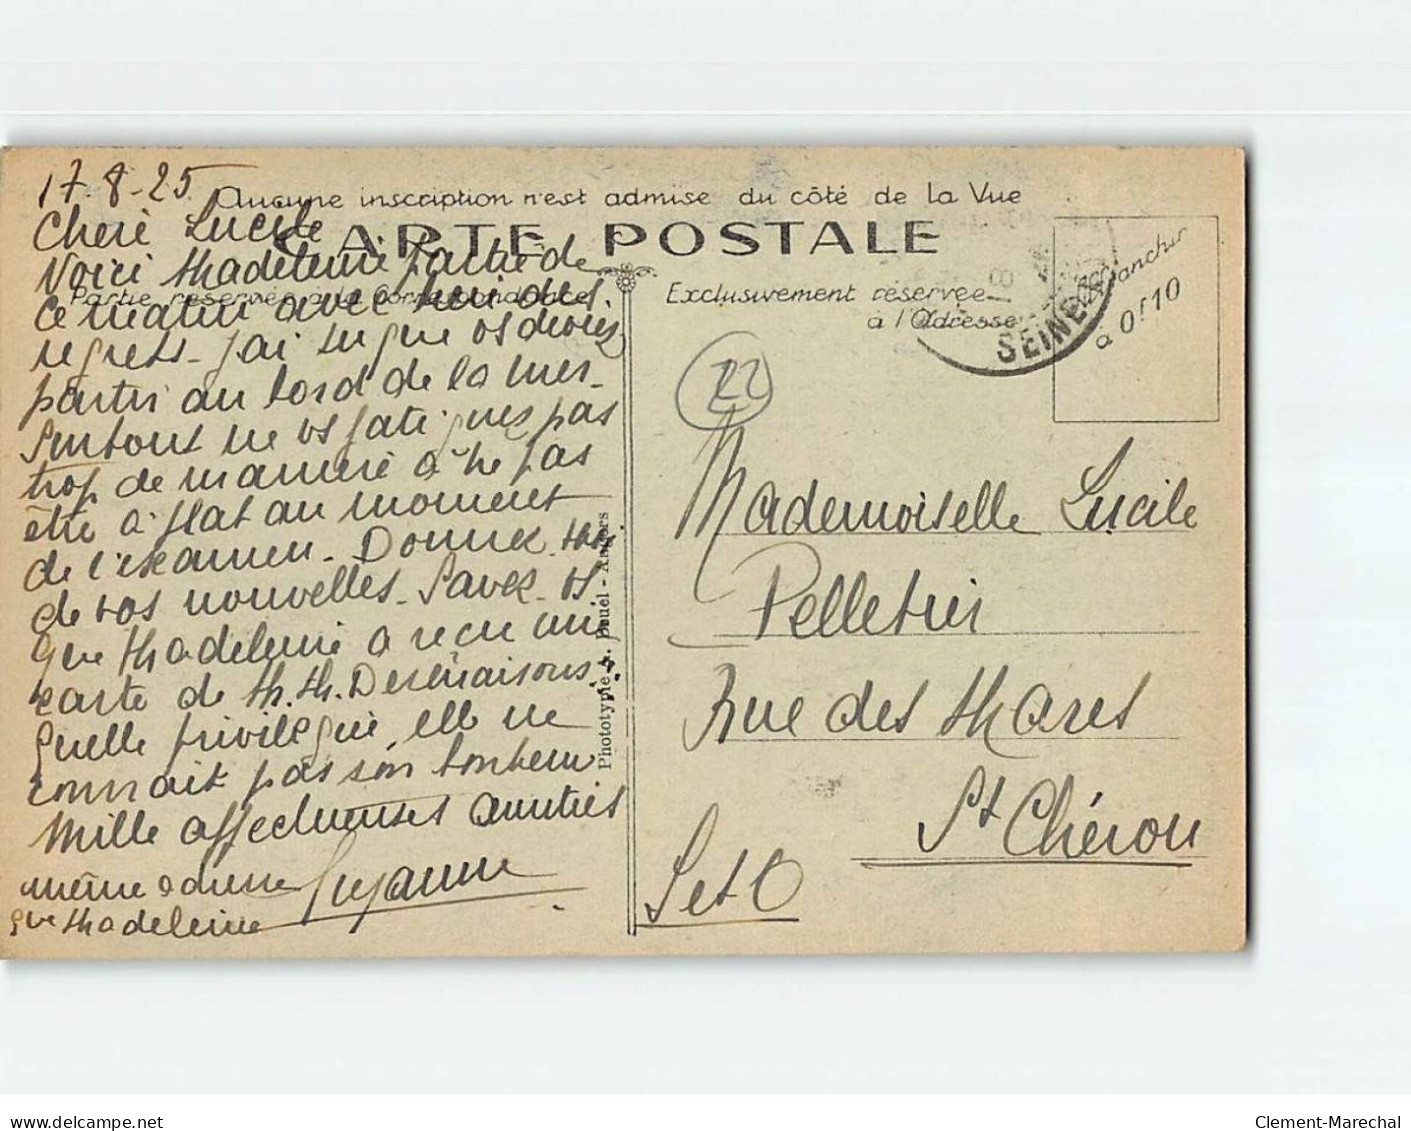 17-8-25
Aucune inscription n'est admise du côté de la Vue
CARTE POSTALE
Partie réservée à la correspondance
Exclusivement réservée
à l'Adresse
Affranchir
à 0f10
SEINE
22
Cheré Lucile
Voici Madeleine partie de
ce matin avec des
regrets - j'ai su que vs devez
partir au bord de la mer -
Surtout ne vs fatiguez pas
trop de manière à ne pas
être à plat au moment
de l'examen - Donnez-moi
de vos nouvelles - Savez-vs
que Madeleine a reçu une
carte de M. M. Desmaisons.
Quelle privilègiè, elle ne
connait pas son bonheur
Mille affectueuses amitiés
Suzanne
même adresse
que Madeleine
Phototypie A. Bruel - Angers
Mademoiselle Lucile
Pelletier
Rue des Mares
St Chéron
S et O
www.delcampe.net
Clement-Marechal